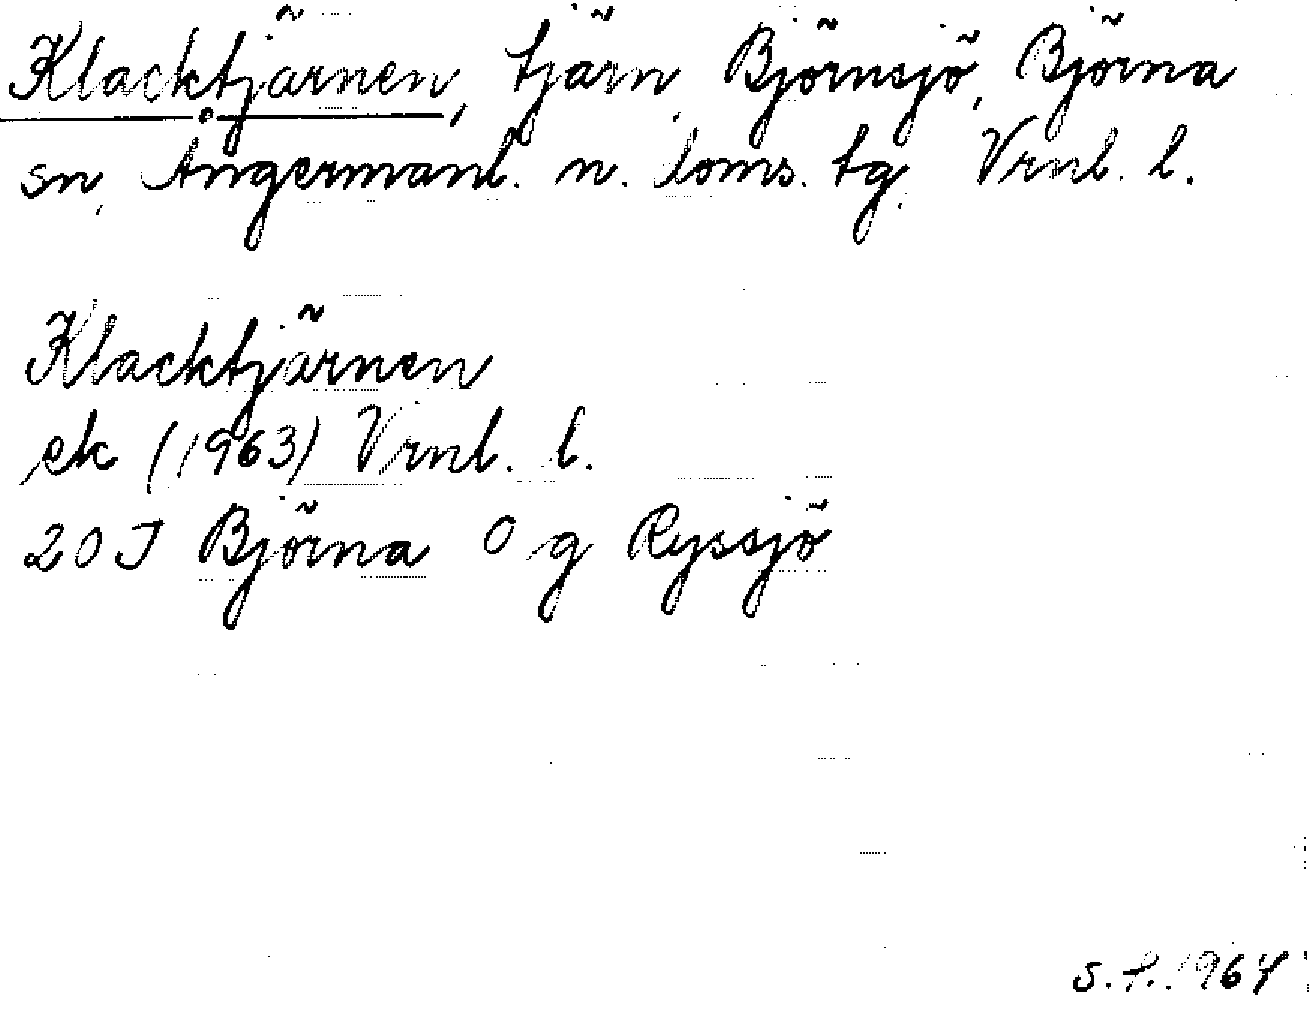 Klacktjärnen, tjärn, Björnsjö, Björna
sn, Ångermanl. n. doms. tg, Vrnl. l.
Klacktjärnen
ek (1963) Vrnl. l.
20 J Björna O g Ryssjö
s. f. 1964